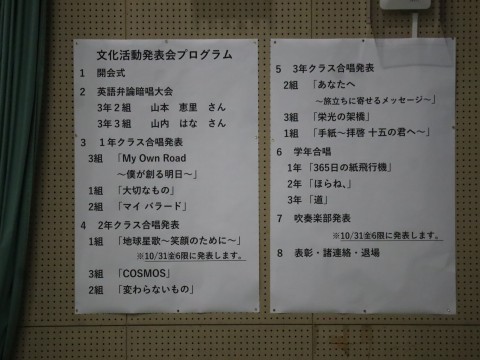 文化活動発表会プログラム
1 開会式
2 英語弁論暗唱大会
3年2組 山本 恵里 さん
3年3組 山内 はな さん
3 1年クラス合唱発表
3組 「My Own Road
～僕が創る明日～」
1組 「大切なもの」
2組 「マイ バラード」
4 2年クラス合唱発表
1組 「地球星歌～笑顔のために～」
※10/31金6限に発表します。
3組 「COSMOS」
2組 「変わらないもの」
5 3年クラス合唱発表
2組 「あなたへ
～旅立ちに寄せるメッセージ～」
3組 「栄光の架橋」
1組 「手紙～拝啓 十五の君へ～」
6 学年合唱
1年 「365日の紙飛行機」
2年 「ほらね、」
3年 「道」
7 吹奏楽部発表
※10/31金6限に発表します。
8 表彰・諸連絡・退場